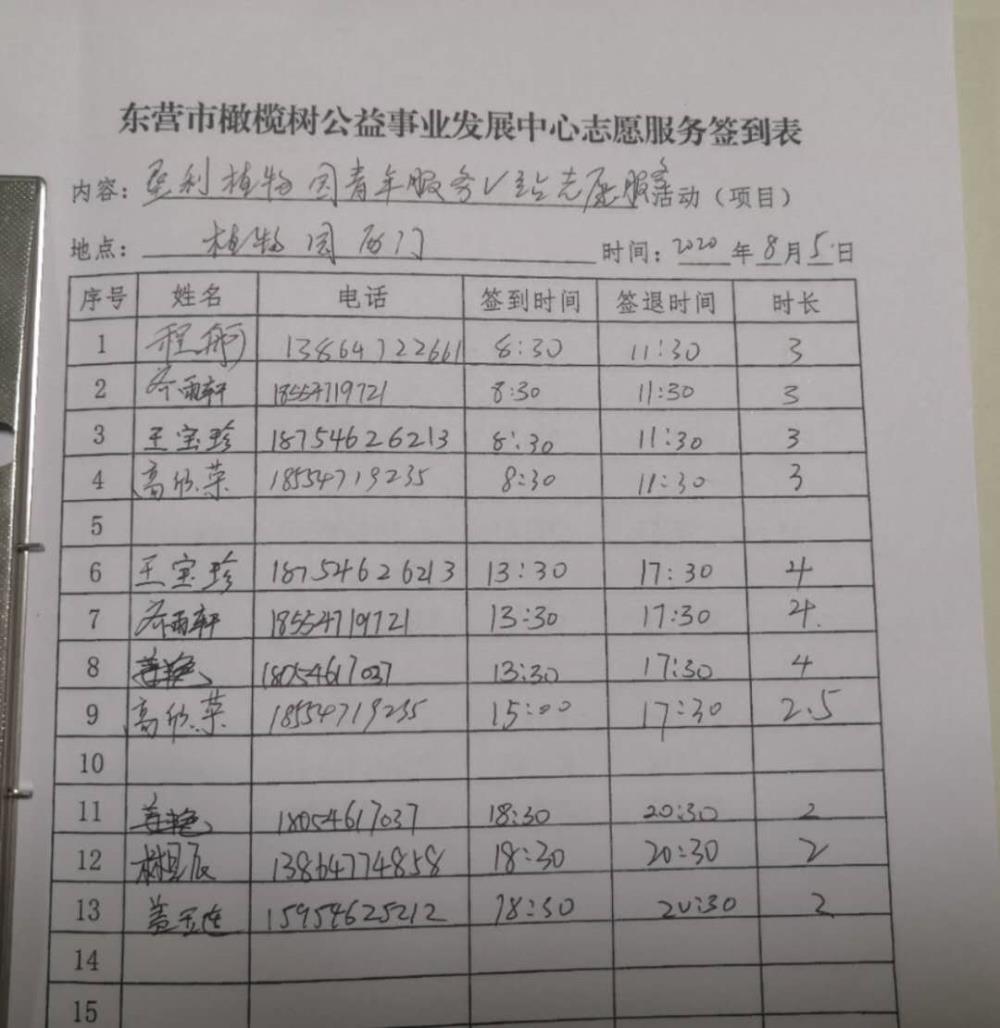 东营市橄榄树公益事业发展中心志愿服务签到表
内容：垦利植物园青年服务V站志愿服务活动（项目）
地点：植物园西门 时间：2020年8月5日
序号 姓名 电话 签到时间 签退时间 时长
1 程 13864722661 8:30 11:30 3
2 齐雨轩 18554719721 8:30 11:30 3
3 王宝珍 18754626213 8:30 11:30 3
4 高欣荣 18554719235 8:30 11:30 3
5
6 王宝珍 18754626213 13:30 17:30 4
7 齐雨轩 18554719721 13:30 17:30 4
8 18054617037 13:30 17:30 4
9 高欣荣 18554719235 15:00 17:30 2.5
10
11 18054617037 18:30 20:30 2
12 13864774858 18:30 20:30 2
13 盖玉莲 15954625212 18:30 20:30 2
14
15